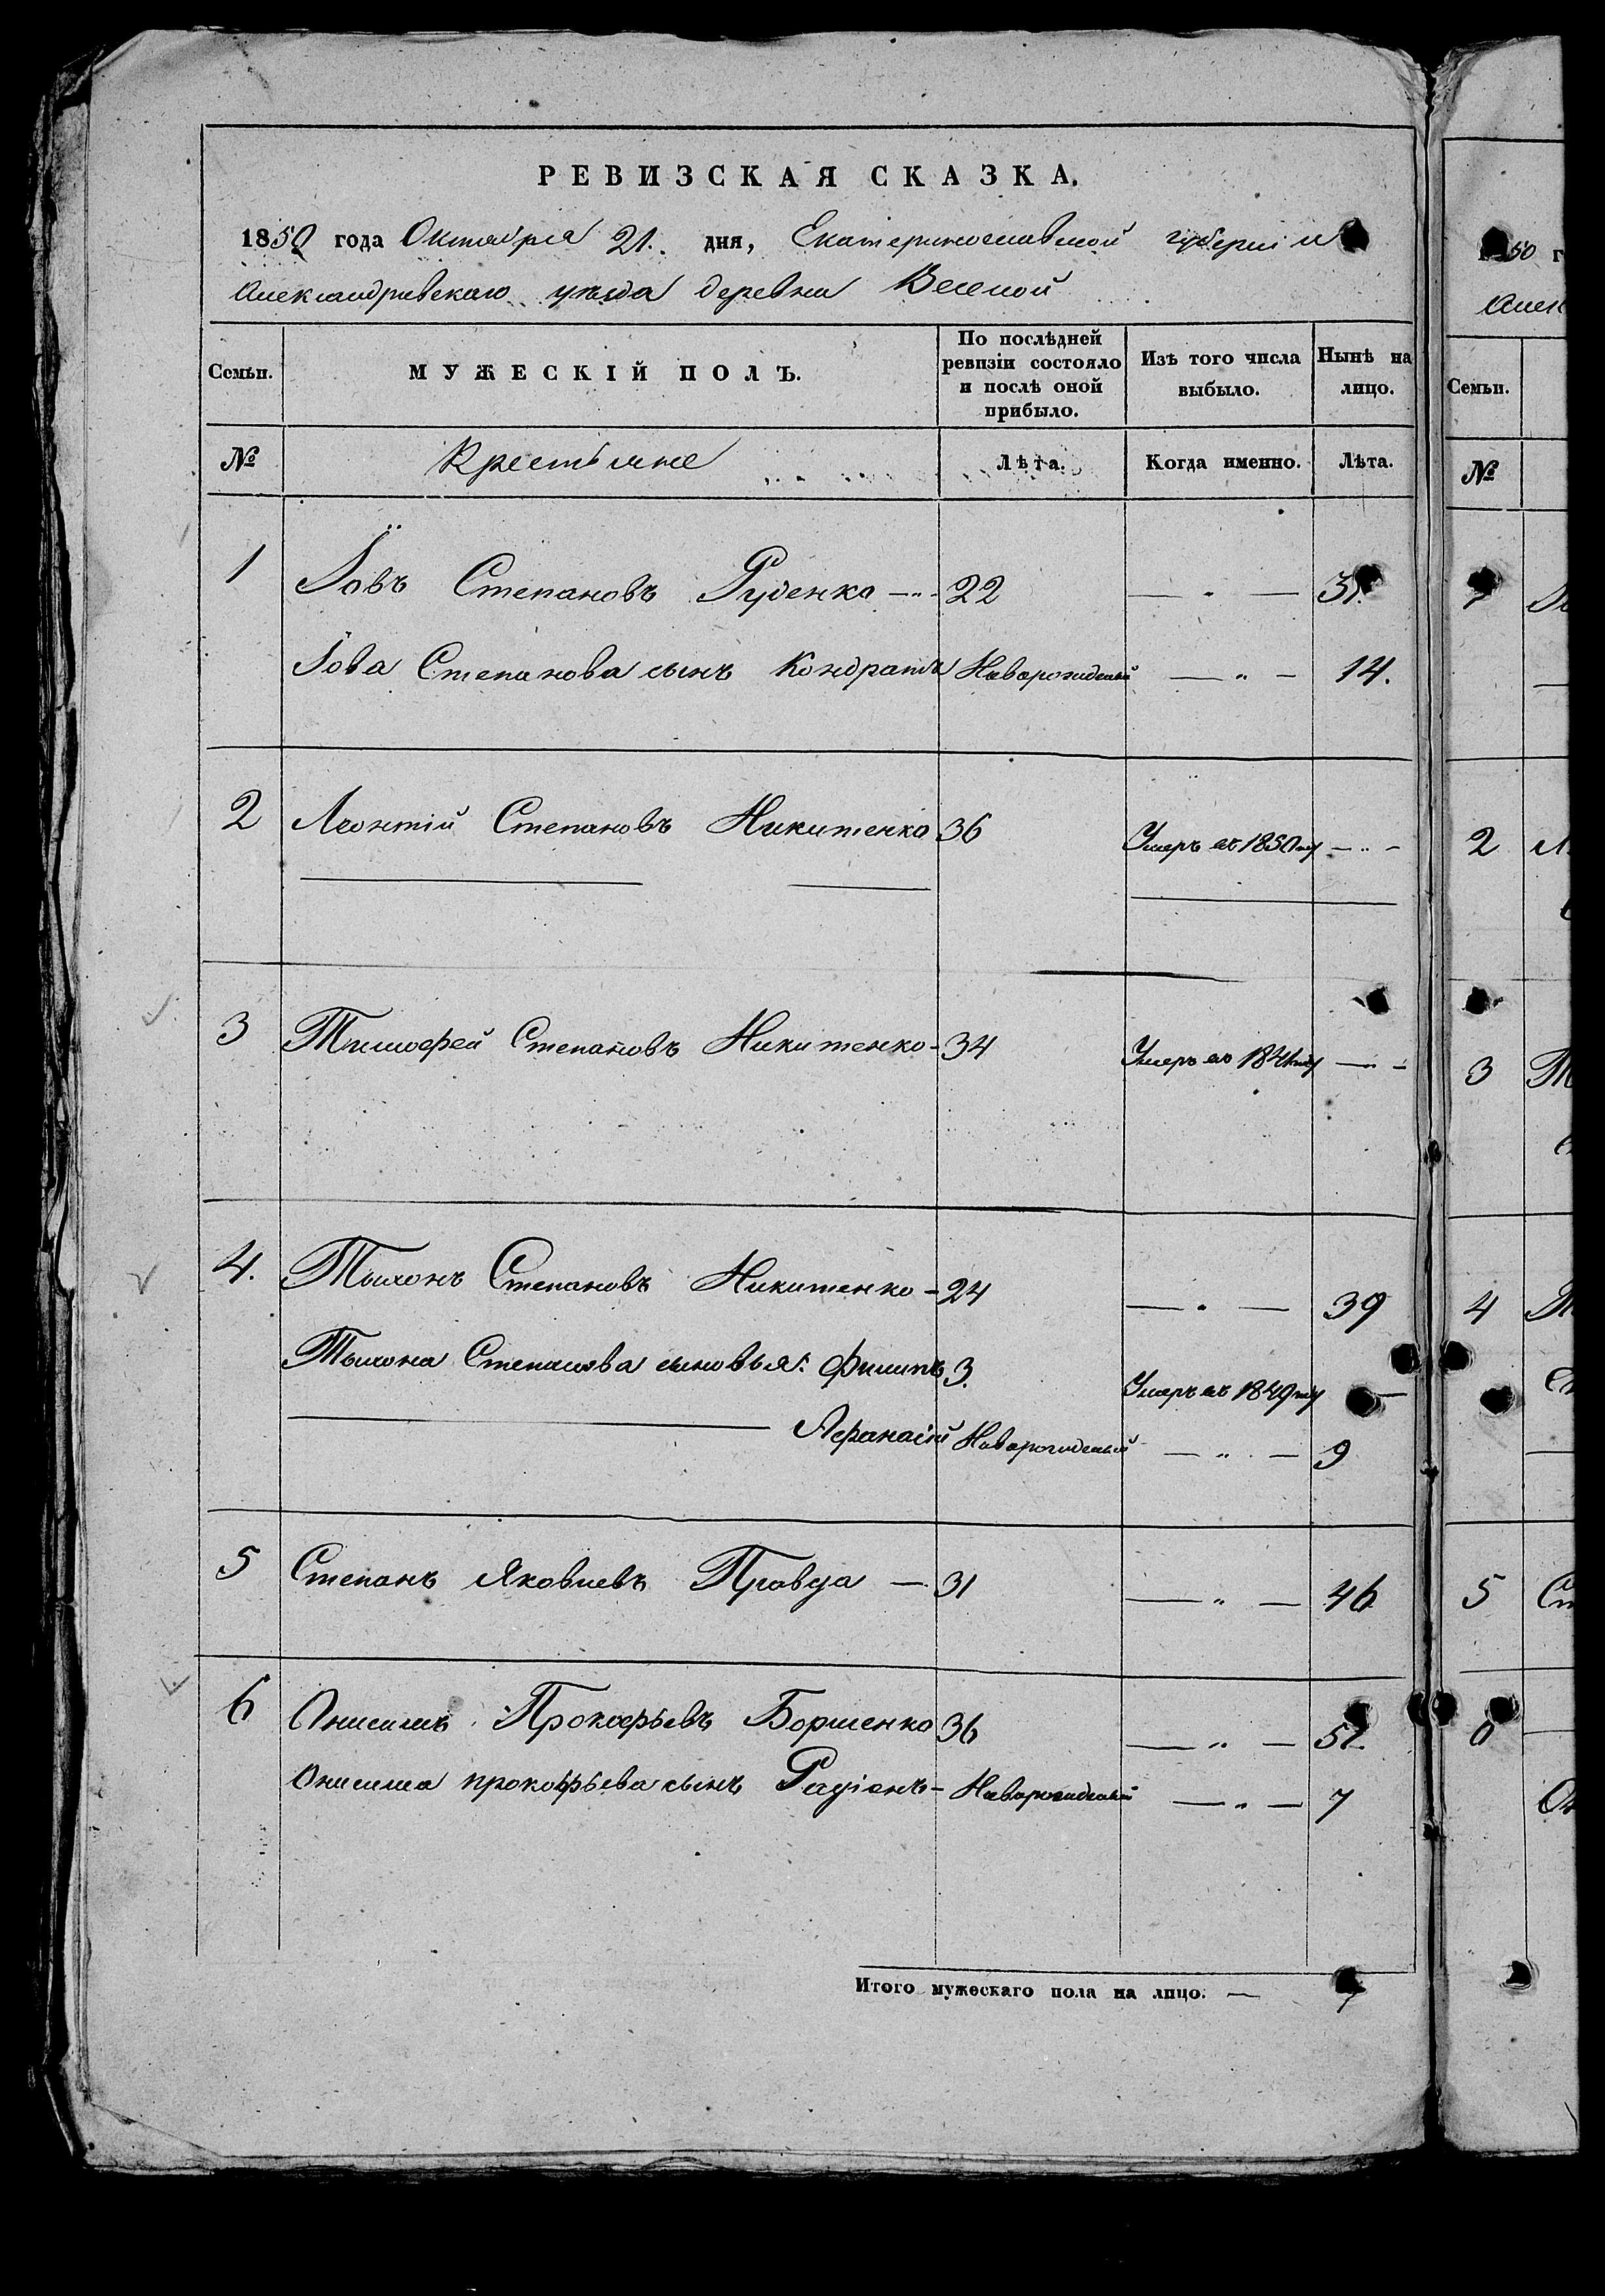 РЕВИЗСКАЯ СКАЗКА.
1850 года Октября 21. дня, Екатеринославской губерніи
Александривскаго уѣзда деревни Веселой
Семьи. МУЖЕСКІЙ ПОЛЪ. По послѣдней ревизіи состояло и послѣ оной прибыло. Изъ того числа выбыло. Нынѣ на лицо.
№ Крестьяне Лѣта. Когда именно. Лѣта.
1 Іовъ Степановъ Руденко 22 — " —
Іова Степанова сынъ Кондратъ Новорожденый — " — 14.
2 Леонтій Степановъ Никитенко 36 Умеръ въ 1850му — " —
3 Тимофей Степановъ Никитенко - 34 Умеръ въ — " —
4. Тыхонъ Степановъ Никитенко - 24 — " — 39
Тыхона Степанова сыновья: Филипъ 3. Умеръ въ 1849му —
Афанасій Новорожденый — " — 9
5 Степанъ Яковлевъ Правда — 31 — " — 46
6 Онисимъ Прокофьевъ Борщенко 36 — " — 51.
Онисима прокофьева сынъ Радіонъ - Новорожденый — " — 7
Итого мужескаго пола на лицо. — 7
50 г
Алек
Семьи.
№
2
3
4
5
6